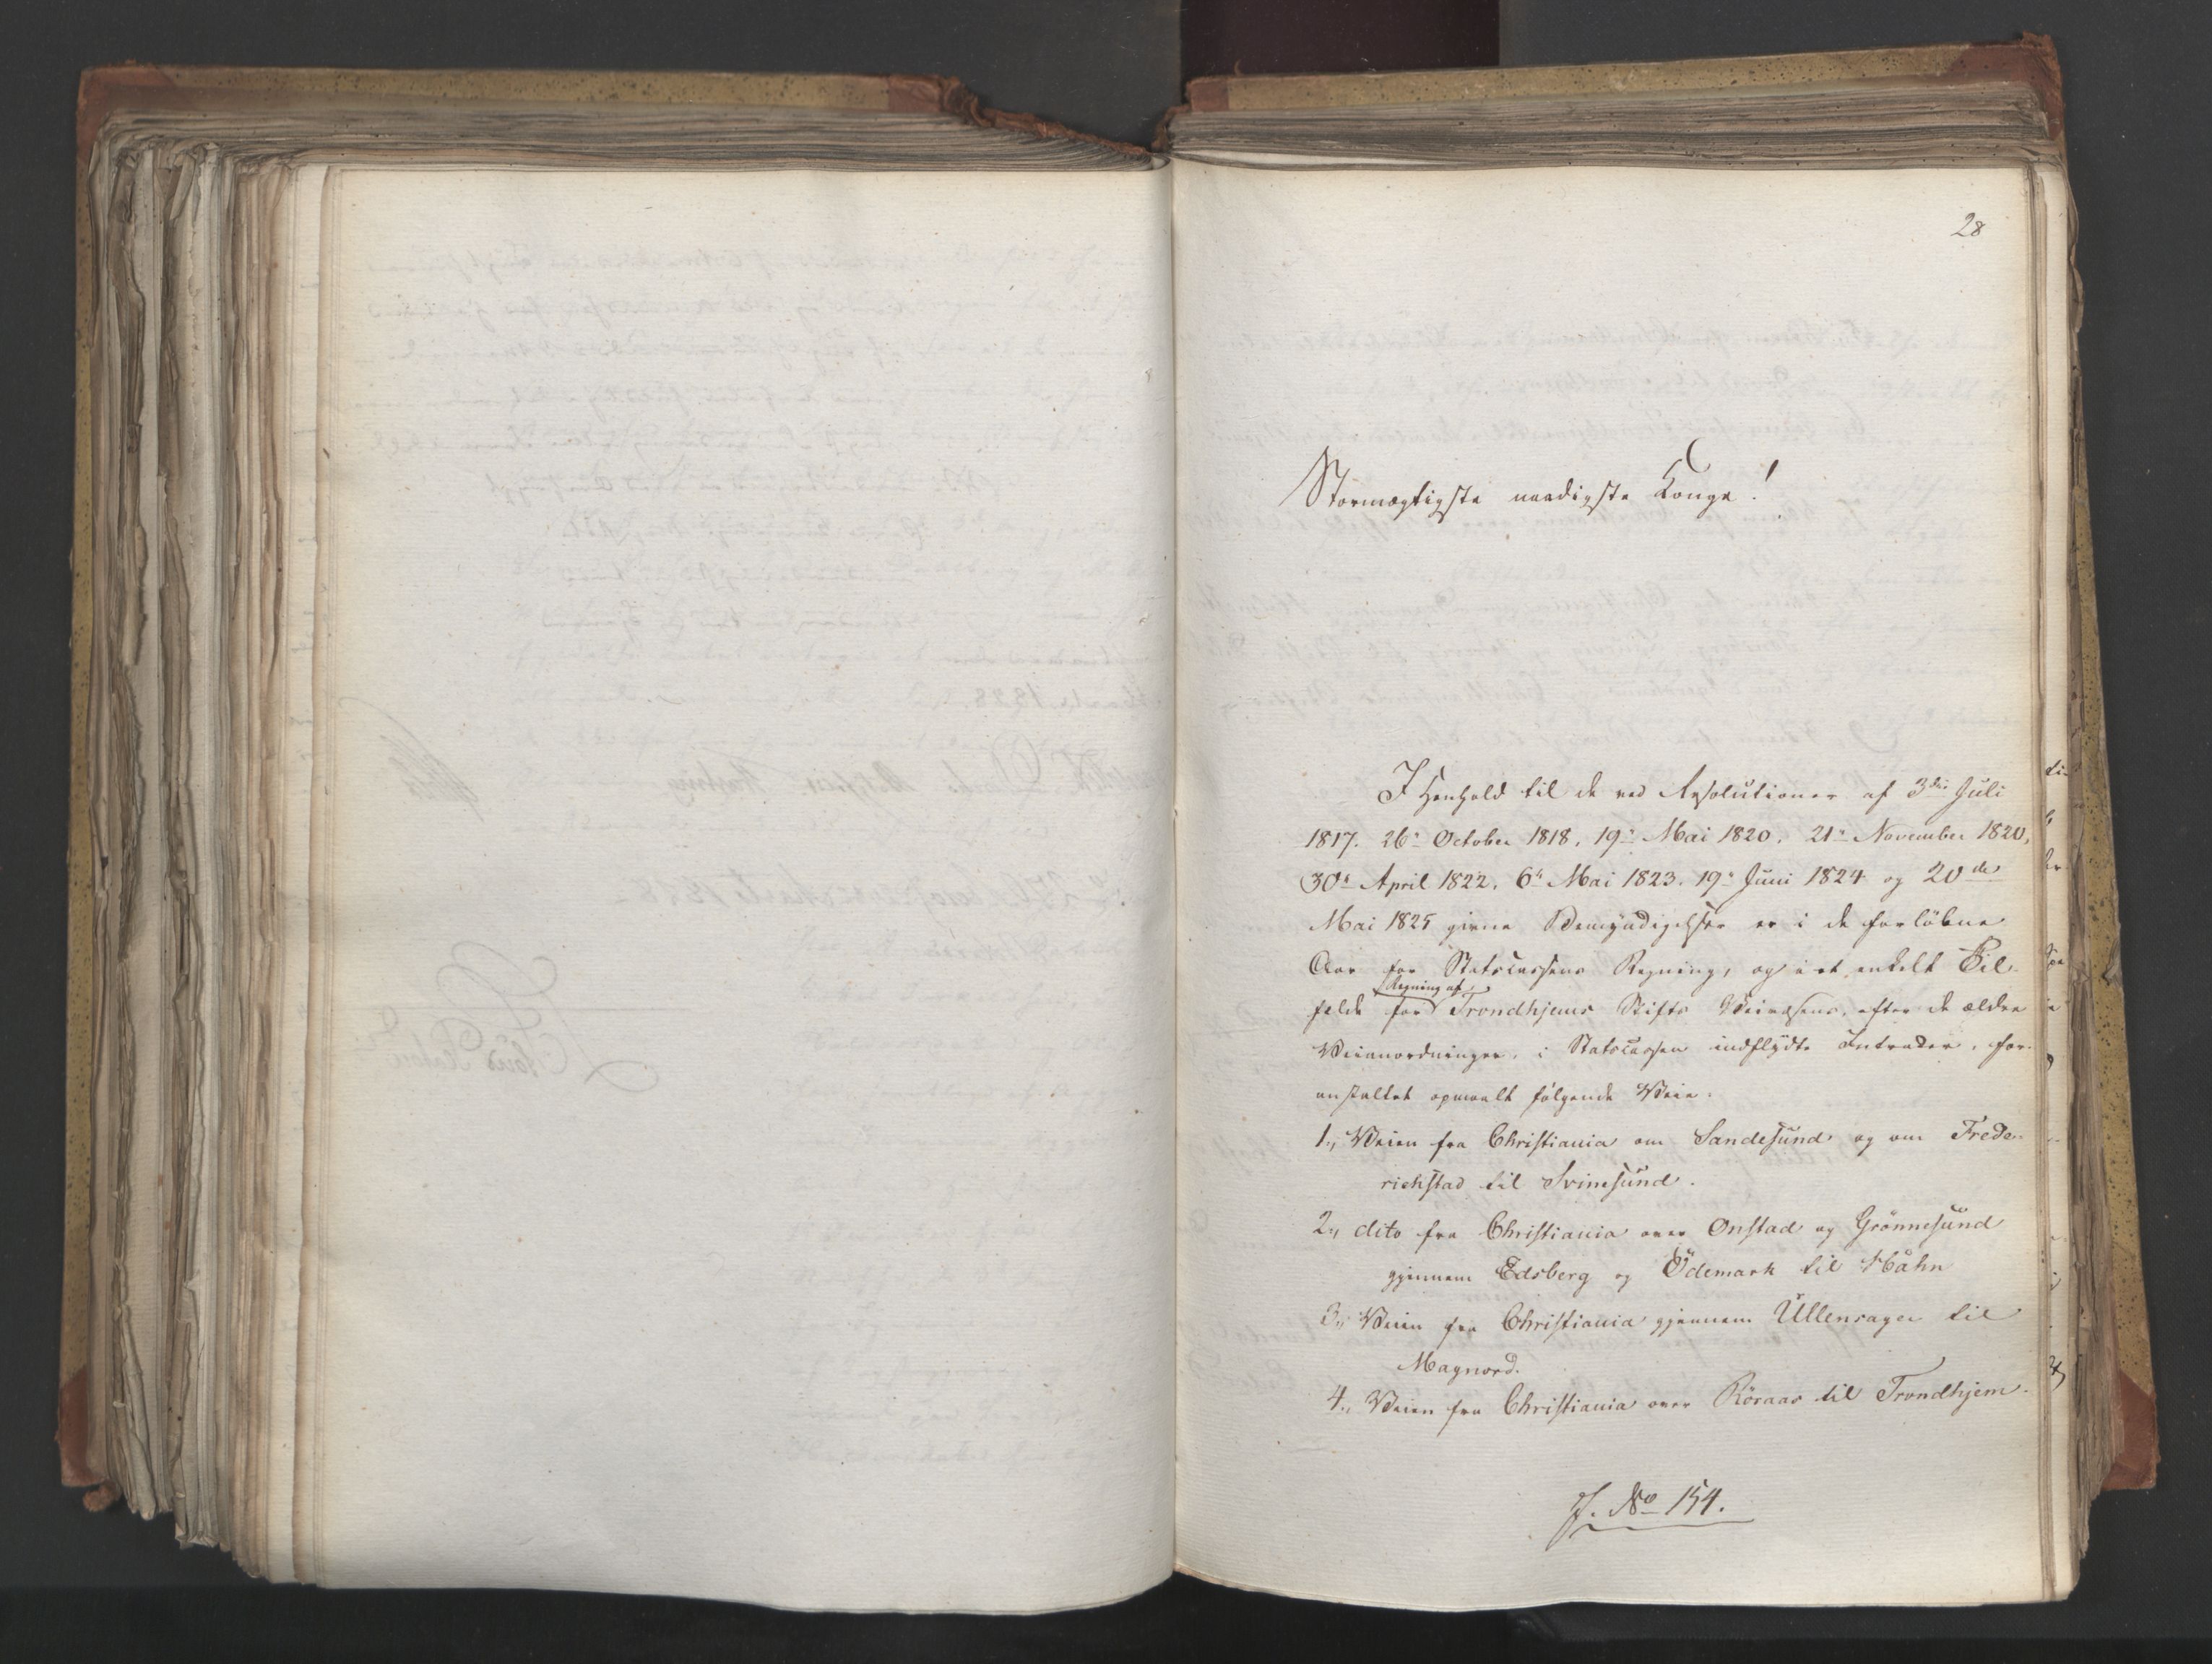 28
Stormægtigste naadigste Konge!
I Henhold til de ved Resolutioner af 3die Juli
1817. 26de October 1818. 19de Mai 1820. 21de November 1820,
30te April 1822. 6te Mai 1823. 19de Juni 1824 og 20de
Mai 1825 givne Bemyndigelser er i de forløbne
Aar for Statscassens Regning, og i et enkelt Til-
fælde for Regning af Trondhjems Stifts Veivæsens, efter de ældre
Veianordninger, i Statscassen indflydte Intrader, for-
anstaltet opmaalt følgende Veie:
1., Veien fra Christiania om Sandesund og om Frede-
richstad til Svinesund.
2., dito fra Christiania over Onstad og Grönnesund
gjennem Edsberg og Ödemark til Håhn
3., Veien fra Christiania gjennem Ullensager til
Magnord.
4., Veien fra Christiania over Röraas til Trondhjem.
J. No 154.